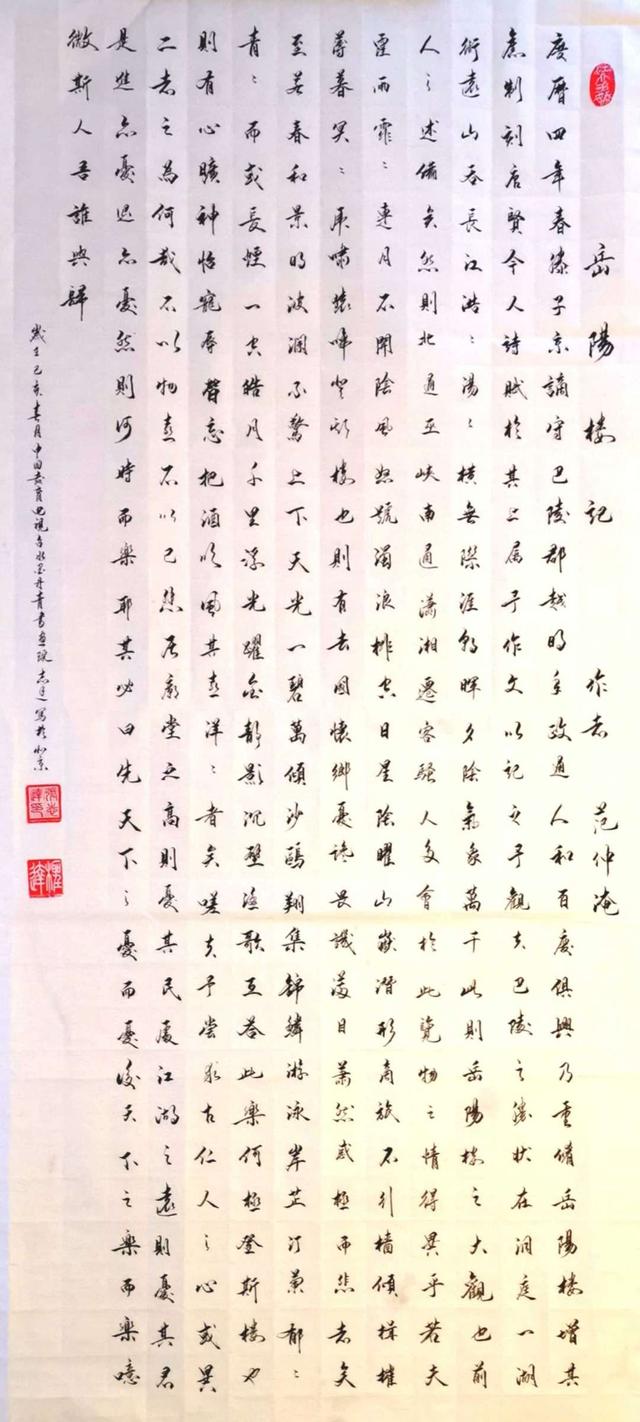 岳陽楼記 作者 范仲淹
慶曆四年春滕子京謫守巴陵郡越明年政通人和百廢俱興乃重脩岳陽楼增其
舊制刻唐賢今人詩賦於其上属予作文以記之予觀夫巴陵之勝状在洞庭一湖
銜遠山吞長江浩〻湯〻橫無際涯朝暉夕陰氣象萬千此則岳陽楼之大觀也前
人之述備矣然則北通巫峽南通瀟湘遷客騷人多會於此覽物之情得異乎若夫
霪雨霏〻連月不開陰風怒號濁浪排空日星隱曜山嶽潛形商旅不行檣傾楫摧
薄暮冥〻虎嘯猿啼登斯楼也則有去國懷鄉憂讒畏譏滿目蕭然感極而悲者矣
至若春和景明波瀾不驚上下天光一碧萬頃沙鷗翔集錦鱗游泳岸芷汀蘭郁〻
青〻而或長煙一空皓月千里浮光躍金靜影沉璧漁歌互答此樂何極登斯楼也
則有心曠神怡寵辱皆忘把酒臨風其喜洋〻者矣嗟夫予嘗求古仁人之心或異
二者之為何哉不以物喜不以己悲居廟堂之高則憂其民處江湖之遠則憂其君
是進亦憂退亦憂然則何時而樂耶其必曰先天下之憂而憂後天下之樂而樂噫
微斯人吾誰與歸
歲在己亥春月中国教育电視台水墨丹青書画院志達寫於北京